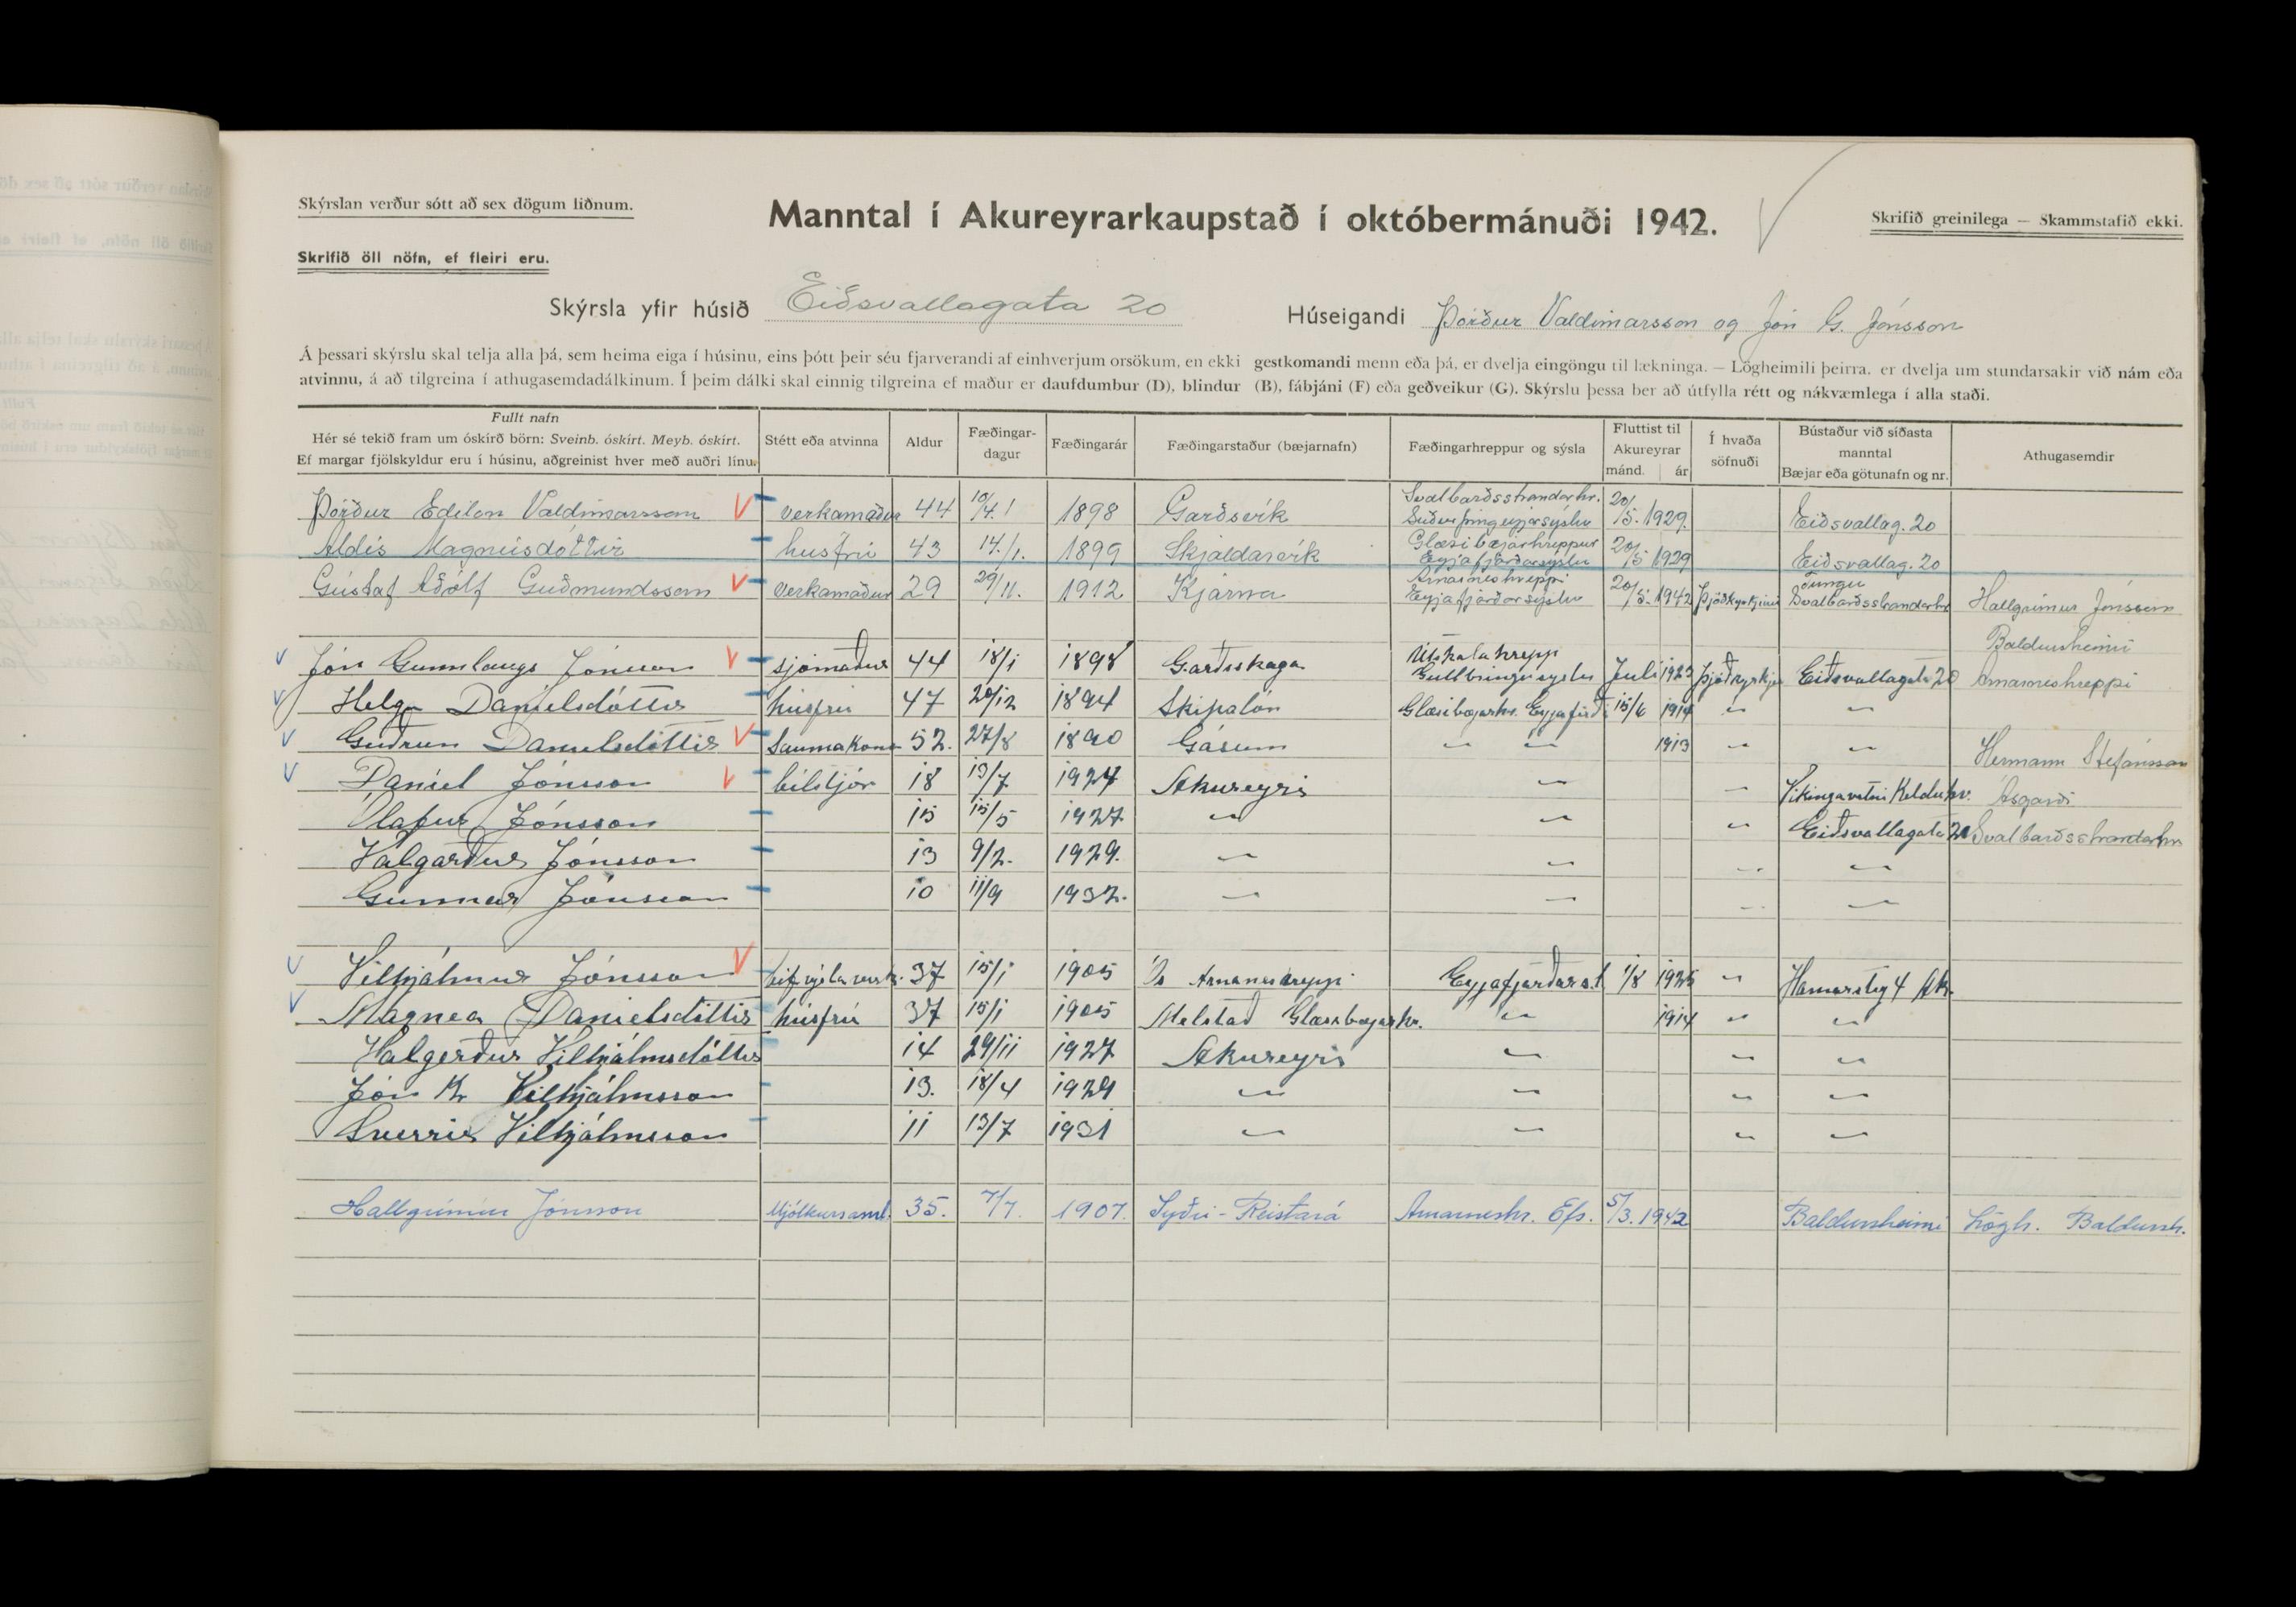 Skýrslan verður sótt að sex dögum liðnum.
Manntal í Akureyrarkaupstað í októbermánuði 1942.
Skrifið greinilega — Skammstafið ekki.
Skrifið öll nöfn, ef fleiri eru.
Skýrsla yfir húsið Eiðsvallagata 20 Húseigandi Þórður Valdimarsson og Jón G. Jónsson
Á þessari skýrslu skal telja alla þá, sem heima eiga í húsinu, eins þótt þeir séu fjarverandi af einhverjum orsökum, en ekki gestkomandi menn eða þá, er dvelja eingöngu til lækninga. — Lögheimili þeirra, er dvelja um stundarsakir við nám eða
atvinnu, á að tilgreina í athugasemdadálkinum. Í þeim dálki skal einnig tilgreina ef maður er daufdumbur (D), blindur (B), fábjáni (F) eða geðveikur (G). Skýrslu þessa ber að útfylla rétt og nákvæmlega í alla staði.
Fullt nafn
Hér sé tekið fram um óskírð börn: Sveinb. óskírt. Meyb. óskírt.
Ef margar fjölskyldur eru í húsinu, aðgreinist hver með auðri línu.
Stétt eða atvinna
Aldur
Fæðingar-
dagur
Fæðingarár
Fæðingarstaður (bæjarnafn)
Fæðingarhreppur og sýsla
Fluttist til
Akureyrar
mánd. ár
Í hvaða
söfnuði
Bústaður við síðasta
manntal
Bæjar eða götunafn og nr.
Athugasemdir
Þórður Edilon Valdimarsson verkamaður 44 10/4 1898 Garðsvík Svalbarðsstrandarhr. Suðurþingeyjarsýslu 20/5. 1929. Eiðsvallag. 20
Aldís Magnúsdóttir húsfrú 43 14./1. 1899 Skjaldarvík Glæsibæjarhreppur Eyjafjarðarsýslu 20/5 1929 Eiðsvallag. 20
Gústaf Aðólf Guðmundsson verkamaður 29 29/11. 1912 Kjarna Arnarneshreppi Eyjafjarðarsýslu 20/5. 1942 Þjóðkirkjunni Tungu Svalbarðsstrandarhr Hallgrímur Jónsson
Baldursheimi
Jón Gunnlaugs Jónsson sjómaður 44 18/1 1898 Garðsskaga Útskálahrepp Gullbringusyslu Juli 1923 Þjóðkyrkju Eiðsvallagata 20 Arnarneshreppi
Helga Danielsdóttir húsfrú 47 20/12 1894 Skipalón Glæsibæjarhr. Eyjafirði 15/6 1914 " "
Guðrun Danielsdóttir Saumakona 52. 27/8 1890 Gásum " " 1913 " "
Hermann Stefánsson
Daníel Jónsson bílstjór 18 13/7 1924 Akureyri " " Víkingavatni Kelduhv. Ásgarði
Ólafur Jónsson 15 15/5 1927 " " " Eiðsvallagata 20 Svalbarðsstrandarhr
Valgarður Jónsson 13 9/2. 1929. " " " "
Gunnar Jónsson 10 11/9 1932. " " " "
Vilhjálmur Jónsson 37 15/1 1905 Arnarneshreppi Eyjafjarðars. 1/8 1925 " Hamarstíg 4 Ak.
Magnea Danielsdóttir húsfrú 37 15/1 1905 Melstað Glæsibæjarhr. " 1914 " "
Halgerður Vilhjálmsdóttir 14 29/11 1927 Akureyri " " "
Jón Kr Vilhjálmsson 13. 18/4 1929 " " " "
Sverrir Vilhjálmsson 11 13/7 1931 " " " "
Hallgrímur Jónsson Mjólkursaml. 35. 7/7. 1907. Syðri-Reistará Arnarneshr. Efs. 5/3. 1942 Baldursheimi Lögh. Baldursh.